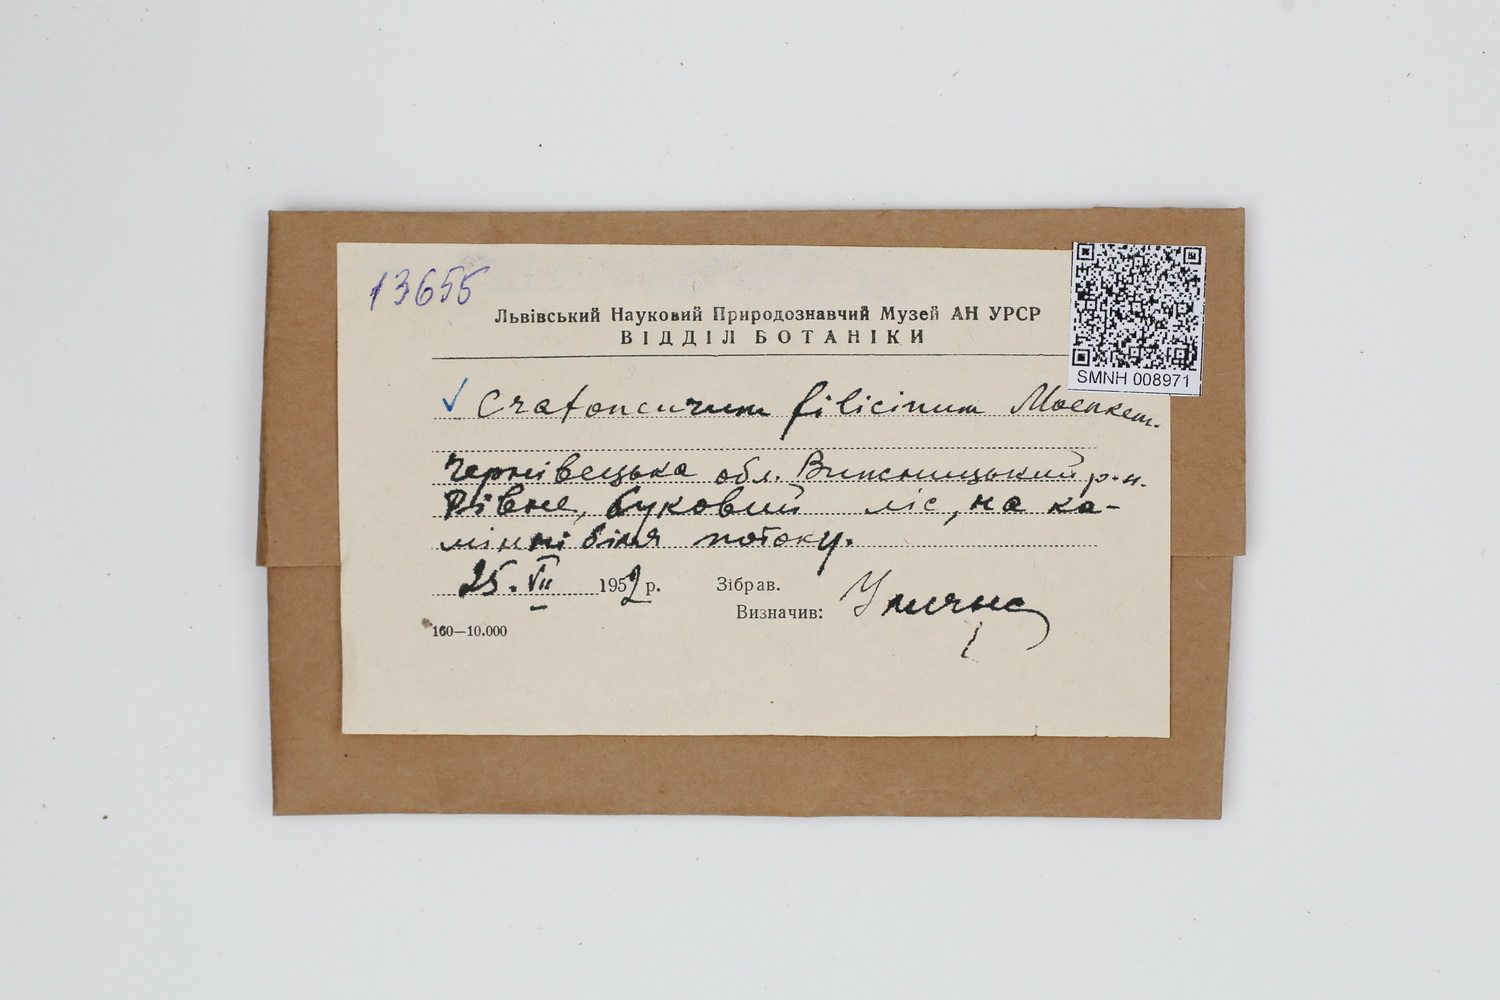 13655
Львівський Науковий Природознавчий Музей АН УРСР
ВІДДІЛ БОТАНІКИ
SMNH 008971
✓ Cratoneurum filicinum Moenkem.
Чернівецька обл. Вижницький р-н.
Рівне, буковий ліс, на ка-
мінні біля потоку.
25. VII 1952 р. Зібрав.
Визначив: Улична
160—10.000